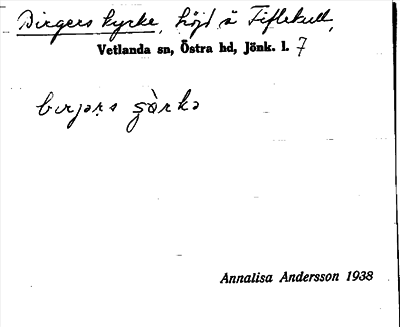 Birgers kyrka, höjd å Fiflekull,
Vetlanda sn, Östra hd, Jönk. l. 7
Annalisa Andersson 1938